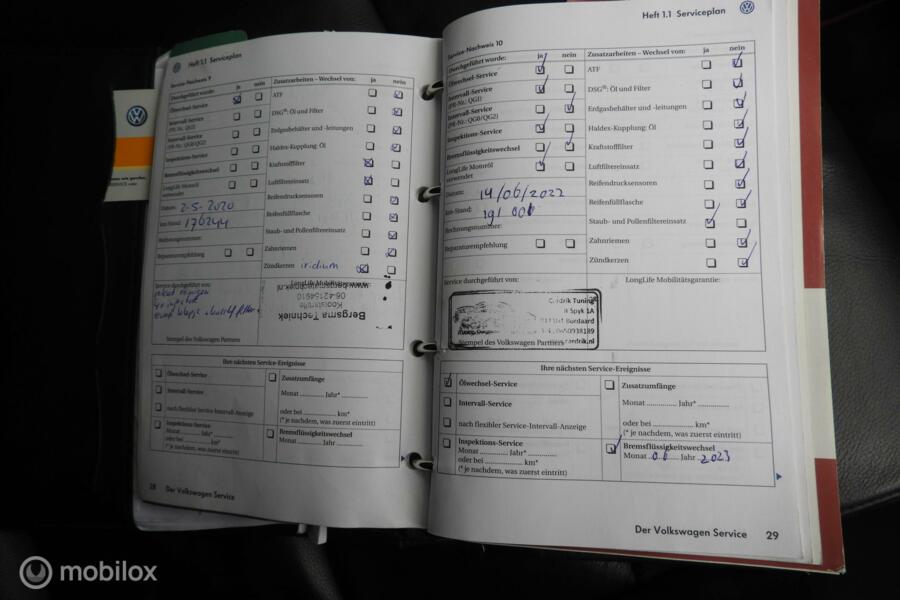 Heft 1.1 Serviceplan
Service-Nachweis 9
Durchgeführt wurde: ja nein
Ölwechsel-Service
Intervall-Service
(PR-Nr.: QG1)
Intervall-Service
(PR-Nr.: QG0/QG2)
Inspektions-Service
Bremsflüssigkeitswechsel
LongLife Motoröl
verwendet
Datum: 2-5-2020
km-Stand: 176244
Rechnungsnummer:
Reparaturempfehlung
Zusatzarbeiten – Wechsel von: ja nein
ATF
DSG®: Öl und Filter
Erdgasbehälter und -leitungen
Haldex-Kupplung: Öl
Kraftstofffilter
Luftfiltereinsatz
Reifendrucksensoren
Reifenfüllflasche
Staub- und Pollenfiltereinsatz
Zahnriemen
Zündkerzen iridium
Service durchgeführt von:
LongLife Mobilitätsgarantie:
Bergsma Techniek
Kooistraitte
06-42154910
Stempel des Volkswagen Partners
Ihre nächsten Service-Ereignisse
Ölwechsel-Service
Intervall-Service
nach flexibler Service-Intervall-Anzeige
Inspektions-Service
Monat Jahr*
oder bei km*
(* je nachdem, was zuerst eintritt)
Zusatzumfänge
Monat Jahr*
oder bei km*
(* je nachdem, was zuerst eintritt)
Bremsflüssigkeitswechsel
Monat Jahr
28 Der Volkswagen Service
Heft 1.1 Serviceplan
Service-Nachweis 10
Durchgeführt wurde: ja nein
Ölwechsel-Service
Intervall-Service
(PR-Nr.: QG1)
Intervall-Service
(PR-Nr.: QG0/QG2)
Inspektions-Service
Bremsflüssigkeitswechsel
LongLife Motoröl
verwendet
Datum: 14/06/2022
km-Stand: 191 001
Rechnungsnummer:
Reparaturempfehlung
Zusatzarbeiten – Wechsel von: ja nein
ATF
DSG®: Öl und Filter
Erdgasbehälter und -leitungen
Haldex-Kupplung: Öl
Kraftstofffilter
Luftfiltereinsatz
Reifendrucksensoren
Reifenfüllflasche
Staub- und Pollenfiltereinsatz
Zahnriemen
Zündkerzen
Service durchgeführt von:
LongLife Mobilitätsgarantie:
Tuning
Spyk 1A
Burdaard
Stempel des Volkswagen Partners
Ihre nächsten Service-Ereignisse
Ölwechsel-Service
Intervall-Service
nach flexibler Service-Intervall-Anzeige
Inspektions-Service
Monat Jahr*
oder bei km*
(* je nachdem, was zuerst eintritt)
Zusatzumfänge
Monat Jahr*
oder bei km*
(* je nachdem, was zuerst eintritt)
Bremsflüssigkeitswechsel
Monat Jahr 2023
Der Volkswagen Service 29
mobilox